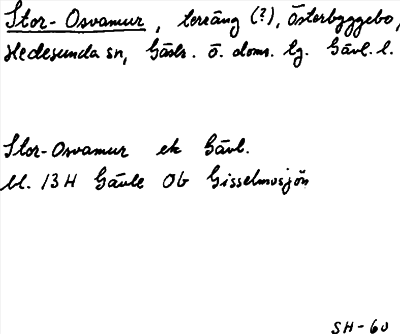 Stor-Osvamur, terräng (?), Österbyggebo,
Hedesunda sn, Gästr. ö. doms. tg. Gävl. l.
Stor-Osvamur ek Gävl.
bl. 13H Gävle 0b Gisselmosjön
SH-60